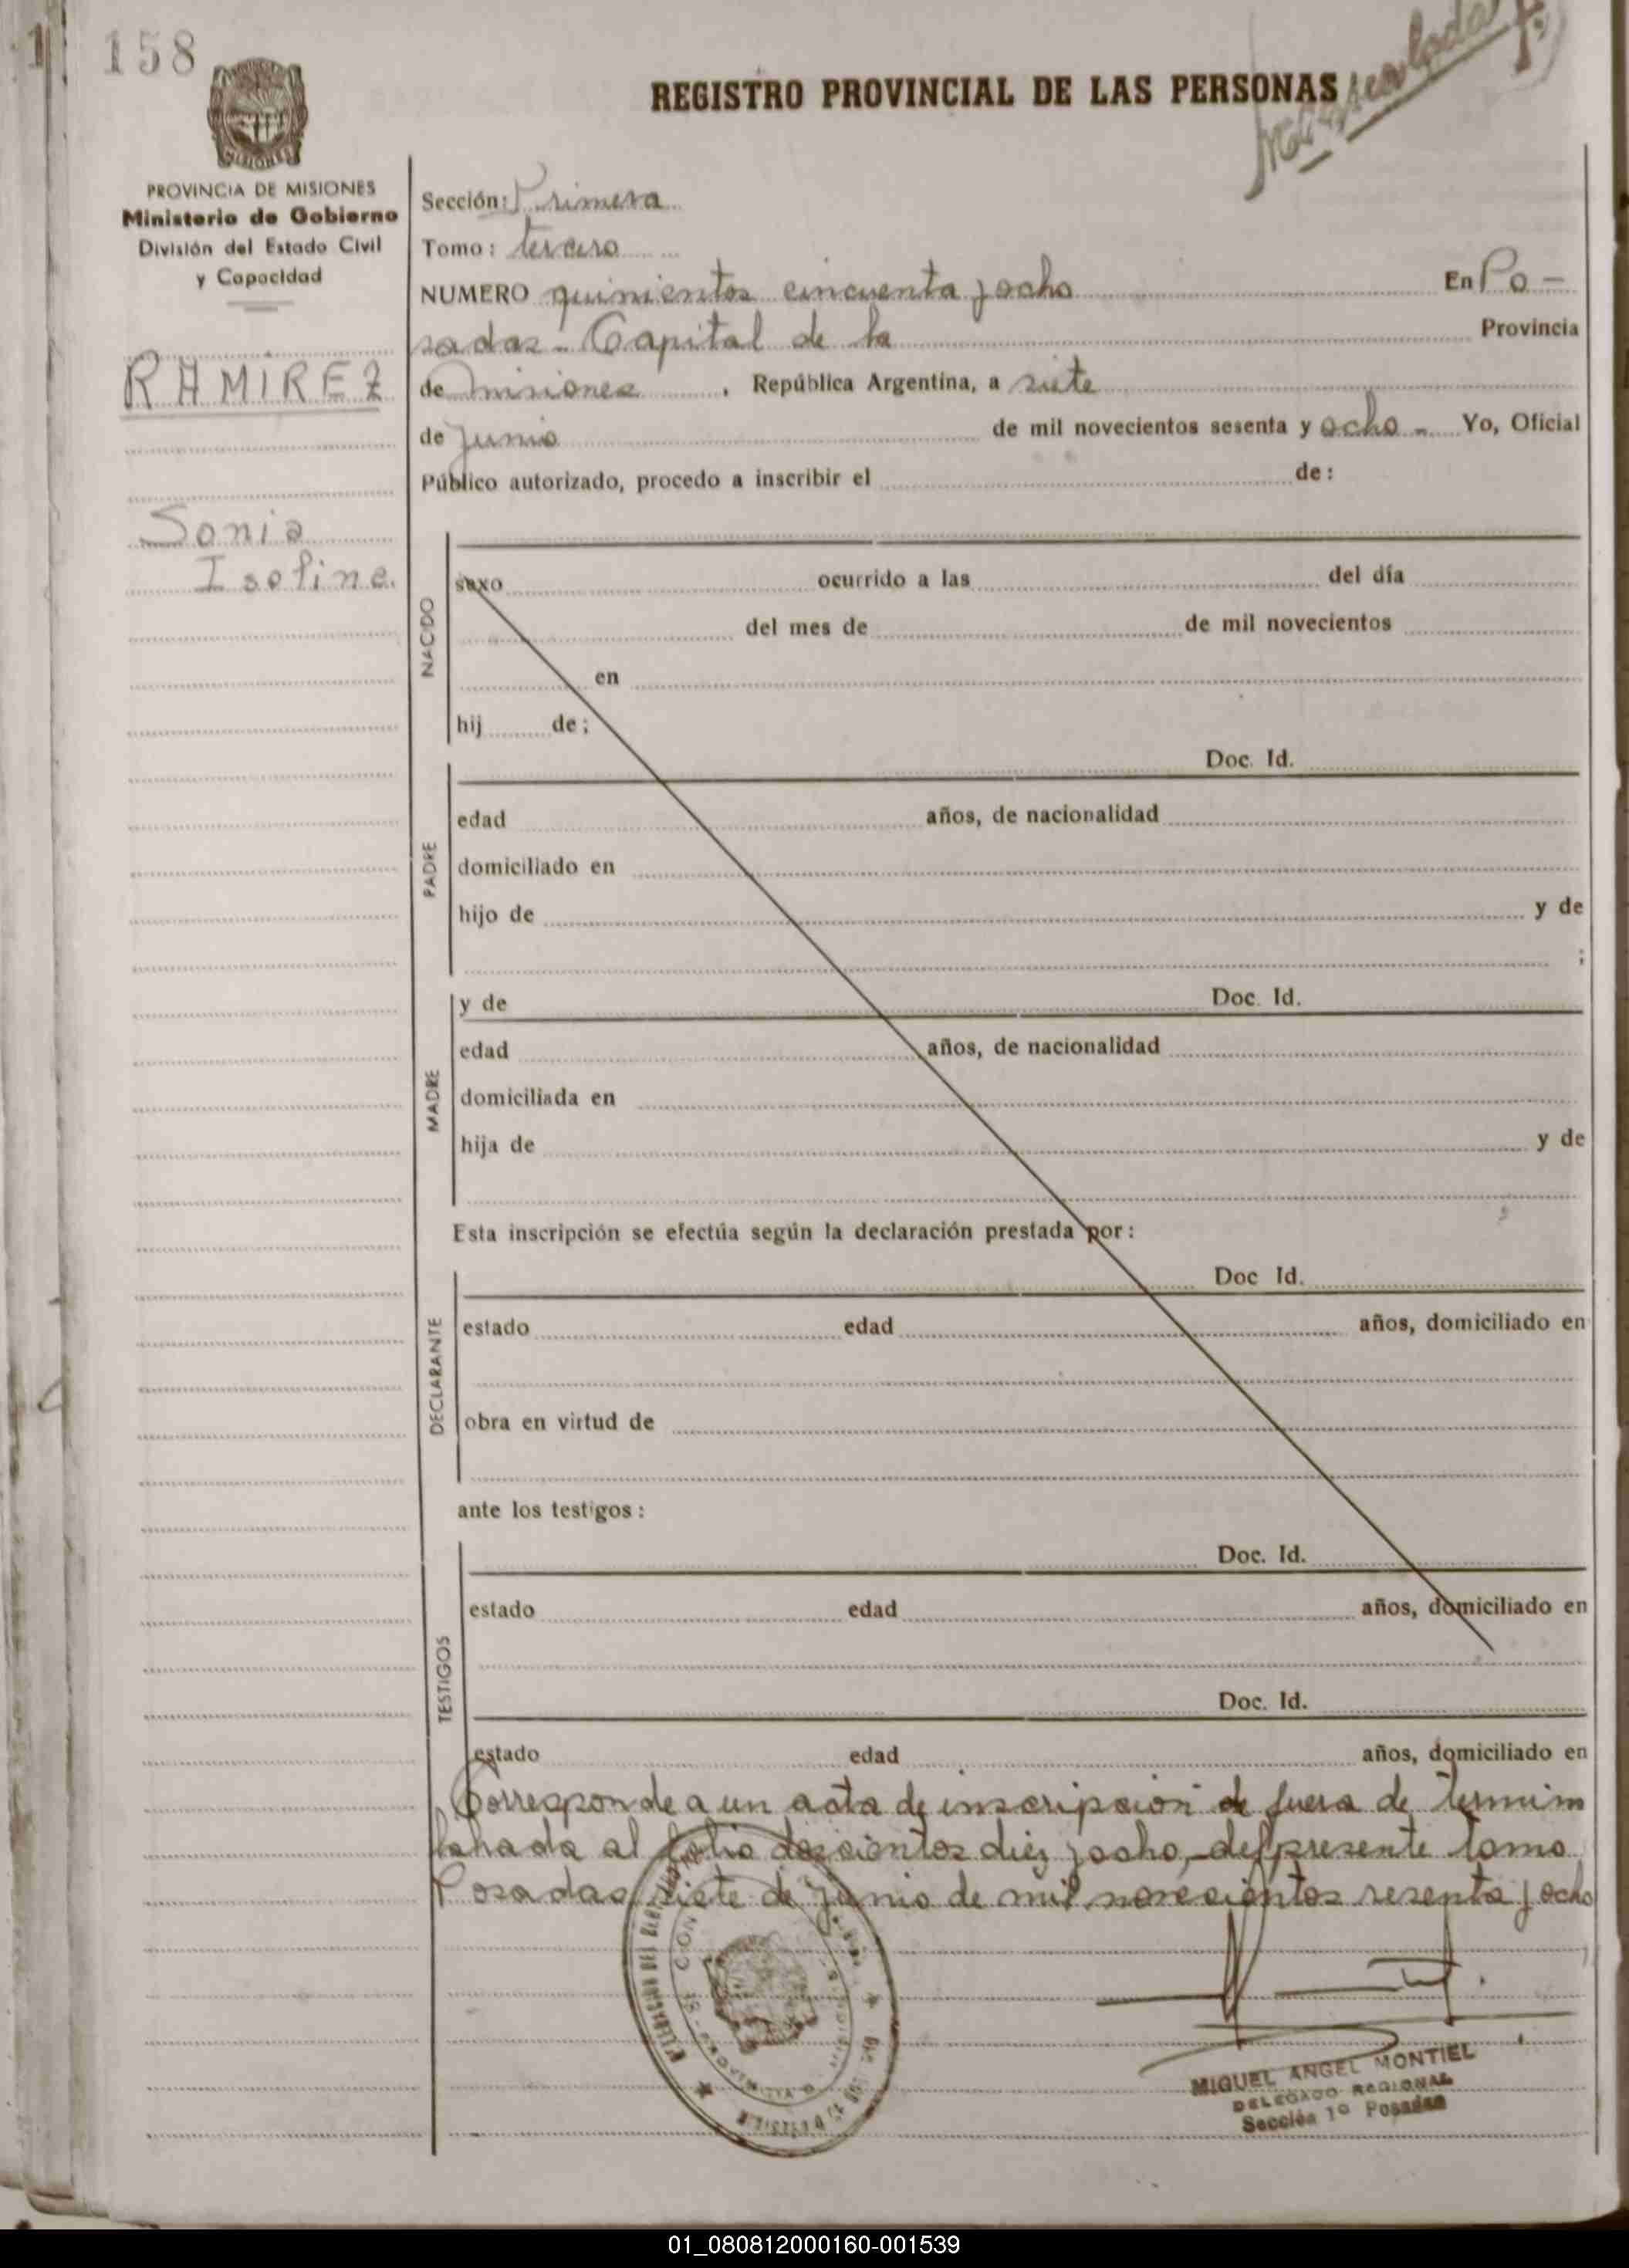 158
REGISTRO PROVINCIAL DE LAS PERSONAS
MISIONES
PROVINCIA DE MISIONES
Ministerio de Gobierno
División del Estado Civil
y Capacidad
RAMIREZ
Sonia
Isolina.
Sección: Primera
Tomo: tercero
NUMERO quinientos cincuenta y ocho En Po-
sadas - Capital de la Provincia
de misiones, República Argentina, a siete
de Junio de mil novecientos sesenta y ocho - Yo, Oficial
Público autorizado, procedo a inscribir el de:
NACIDO
sexo ocurrido a las del día
del mes de de mil novecientos
en
hij de;
PADRE
Doc. Id.
edad años, de nacionalidad
domiciliado en
hijo de y de
;
MADRE
y de Doc. Id.
edad años, de nacionalidad
domiciliada en
hija de y de
Esta inscripción se efectúa según la declaración prestada por:
DECLARANTE
Doc Id.
estado edad años, domiciliado en
obra en virtud de
ante los testigos:
TESTIGOS
Doc. Id.
estado edad años, domiciliado en
Doc. Id.
estado edad años, domiciliado en
Corresponde a un acta de inscripcion de fuera de termino
labrada al folio doscientos diez y ocho, del presente tomo
Posadas, siete de Junio de mil novecientos sesenta y ocho
MIGUEL ANGEL MONTIEL
DELEGADO REGIONAL
Sección 1º Posadas
01_080812000160-001539